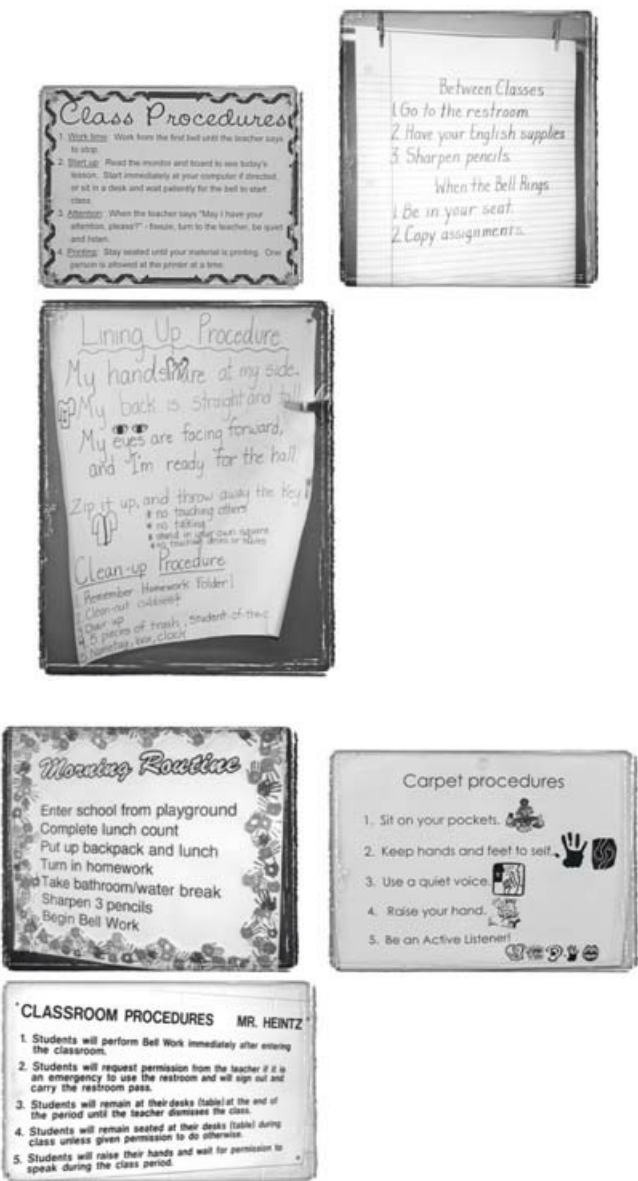 Class Procedures
1. Work time: Work from the first bell until the teacher says
to stop.
2. Start up: Read the monitor and board to see today's
lesson. Start immediately at your computer if directed,
or sit in a desk and wait patiently for the bell to start
class.
3. Attention: When the teacher says "May I have your
attention, please?" - freeze, turn to the teacher, be quiet
and listen.
4. Printing: Stay seated until your material is printing. One
person is allowed at the printer at a time.
Between Classes
1. Go to the restroom.
2. Have your English supplies
3. Sharpen pencils.
When the Bell Rings
1. Be in your seat.
2. Copy assignments.
Lining Up Procedure
My hands are at my side.
My back is straight and tall
My eyes are facing forward,
and I'm ready for the hall
Zip it up, and throw away the key!
* no touching others
* no talking
* stand in your own square
* no touching
Clean-up Procedure
1. Remember Homework Folder!
2. Clean-out cubbies
3. Chair up
4. 5 pieces of trash, Student-of-the-
5. Nametag, box, clock
Morning Routine
Enter school from playground
Complete lunch count
Put up backpack and lunch
Turn in homework
Take bathroom/water break
Sharpen 3 pencils
Begin Bell Work
Carpet procedures
1. Sit on your pockets.
2. Keep hands and feet to self.
3. Use a quiet voice.
4. Raise your hand.
5. Be an Active Listener!
CLASSROOM PROCEDURES MR. HEINTZ
1. Students will perform Bell Work immediately after entering
the classroom.
2. Students will request permission from the teacher if it is
an emergency to use the restroom and will sign out and
carry the restroom pass.
3. Students will remain at their desks (table) at the end of
the period until the teacher dismisses the class.
4. Students will remain seated at their desks (table) during
class unless given permission to do otherwise.
5. Students will raise their hands and wait for permission to
speak during the class period.